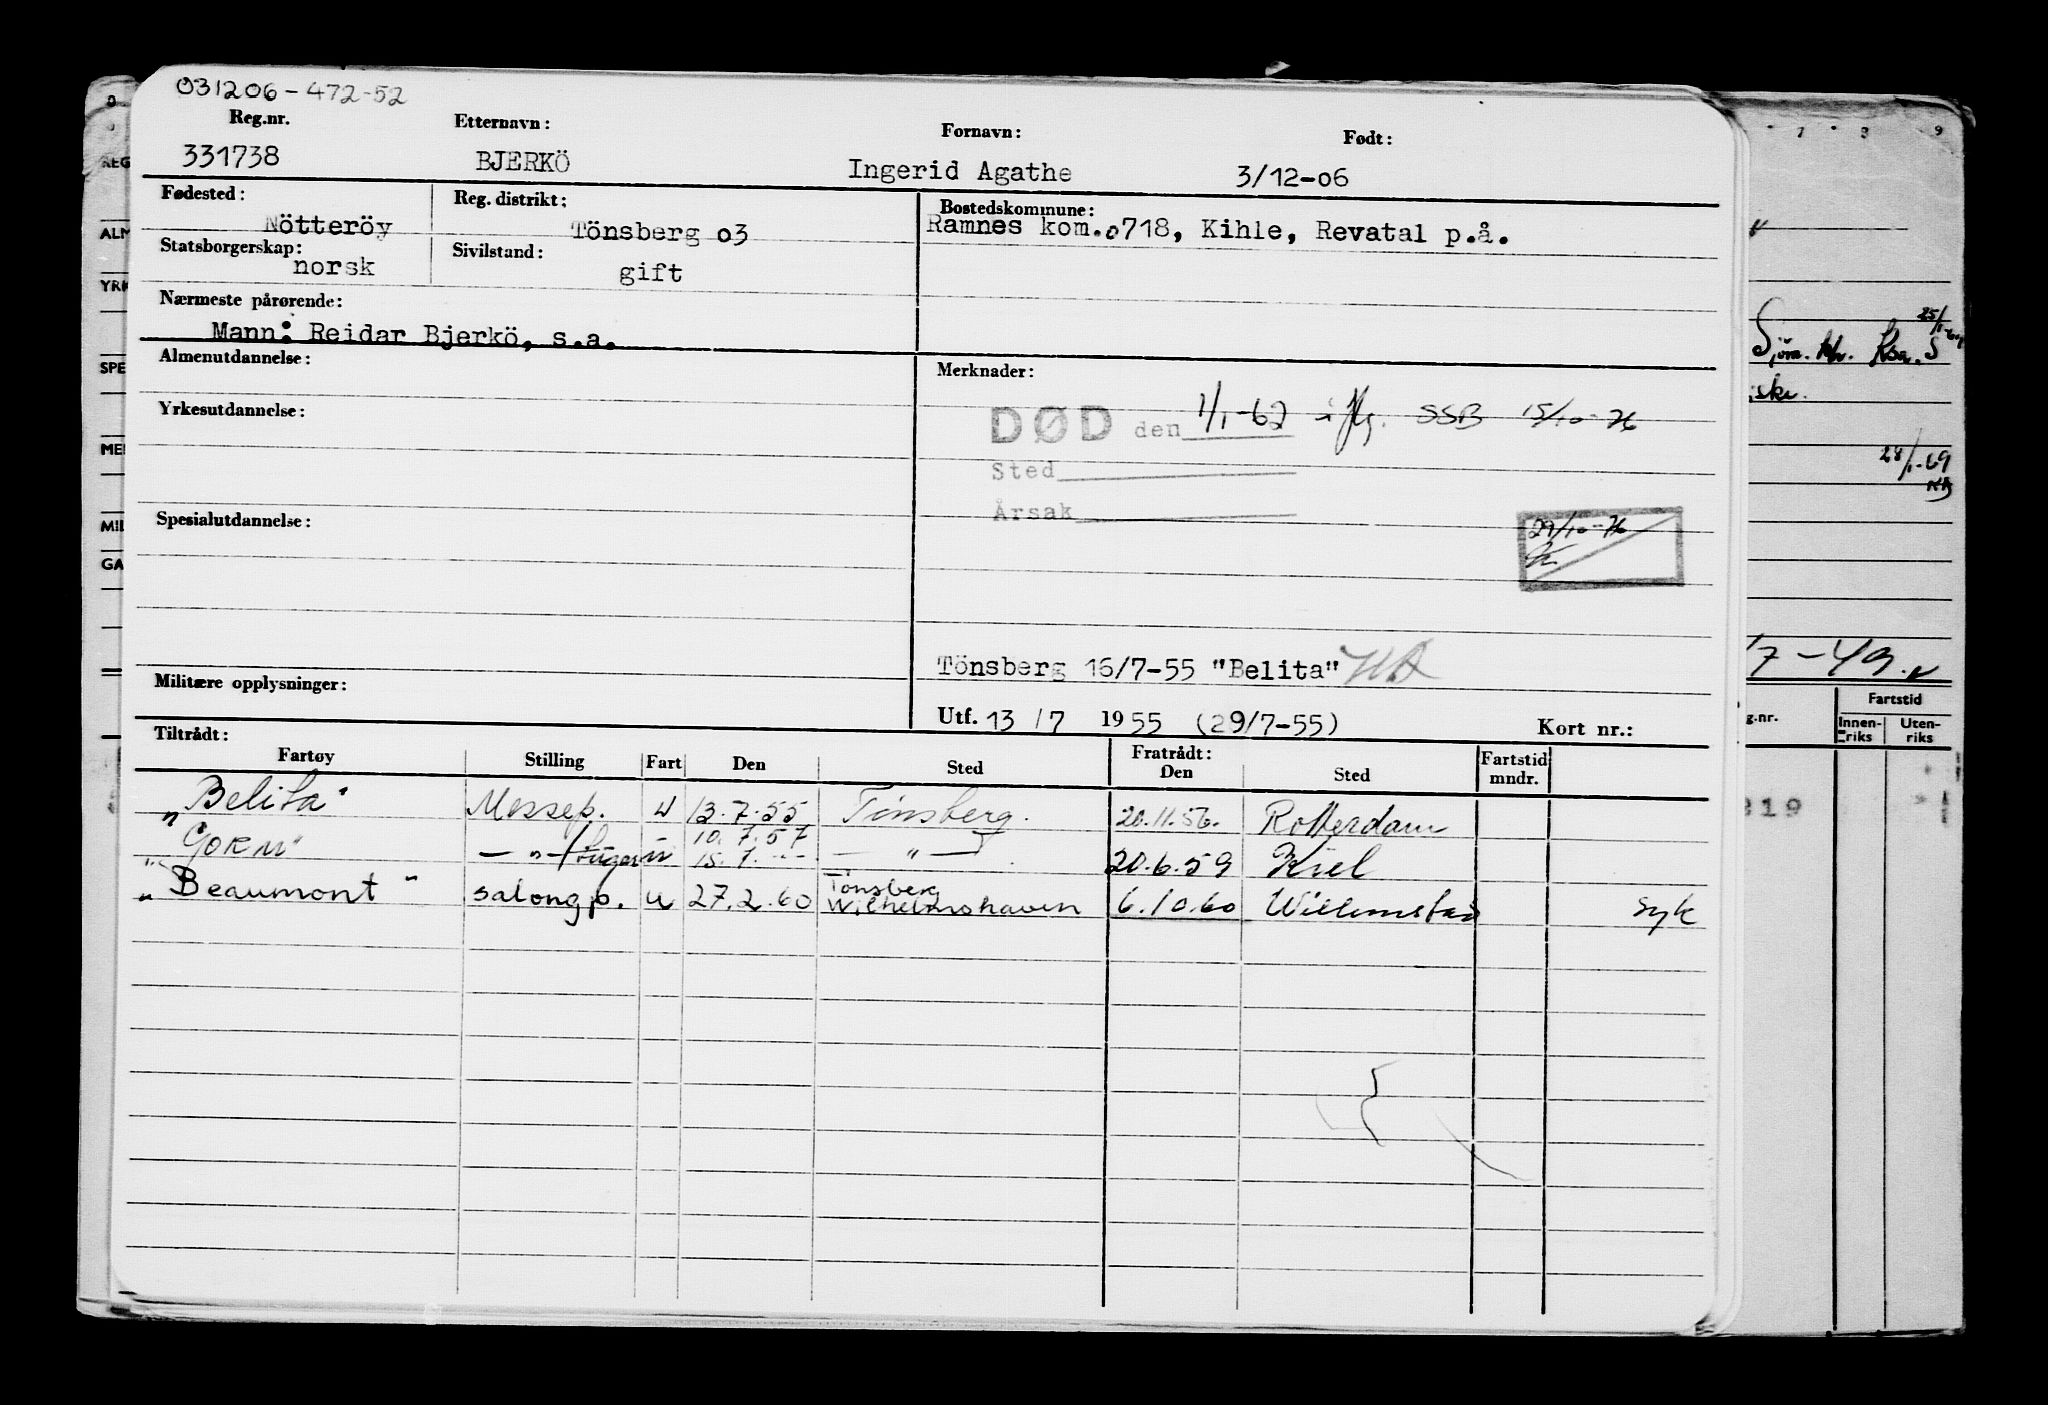 031206-472-52
Reg.nr. Etternavn: Fornavn: Født:
331738 BJERKÖ Ingerid Agathe 3/12-06
Fødested: Reg. distrikt: Bostedskommune:
Nötteröy Tönsberg 03 Ramnes kom. 0718, Kihle, Revatal p.å.
Statsborgerskap: Sivilstand:
norsk gift
Nærmeste pårørende:
Mann: Reidar Bjerkö, s.a.
Almenutdannelse: Merknader:
Yrkesutdannelse: DØD den 1/1-62 SSB 15/10-76
Sted
Årsak
Spesialutdannelse: 29/10-76
Tönsberg 16/7-55 "Belita"
Militære opplysninger:
Utf. 13/7 1955 (29/7-55) Kort nr.:
Tiltrådt: Fratrådt:
Fartøy Stilling Fart Den Sted Den Sted Fartstid mndr.
"Belita" Messep. u 13.7.55 Tönsberg. 20.11.56. Rotterdam
10.7.57
"GORM" — " — u 15.7. — — " — 20.6.59 Kiel
Tönsberg
"Beaumont" salongp. u 27.2.60 Wilhelmshaven 6.10.60 Willemstad syk
7 8 9
REG
ALM
YRK
SPE
MEI
MIL
GA
25/1-69
Sjöm.
28/1-69
/7-49.
g.nr. Fartstid
Innen-riks Uten-riks
219